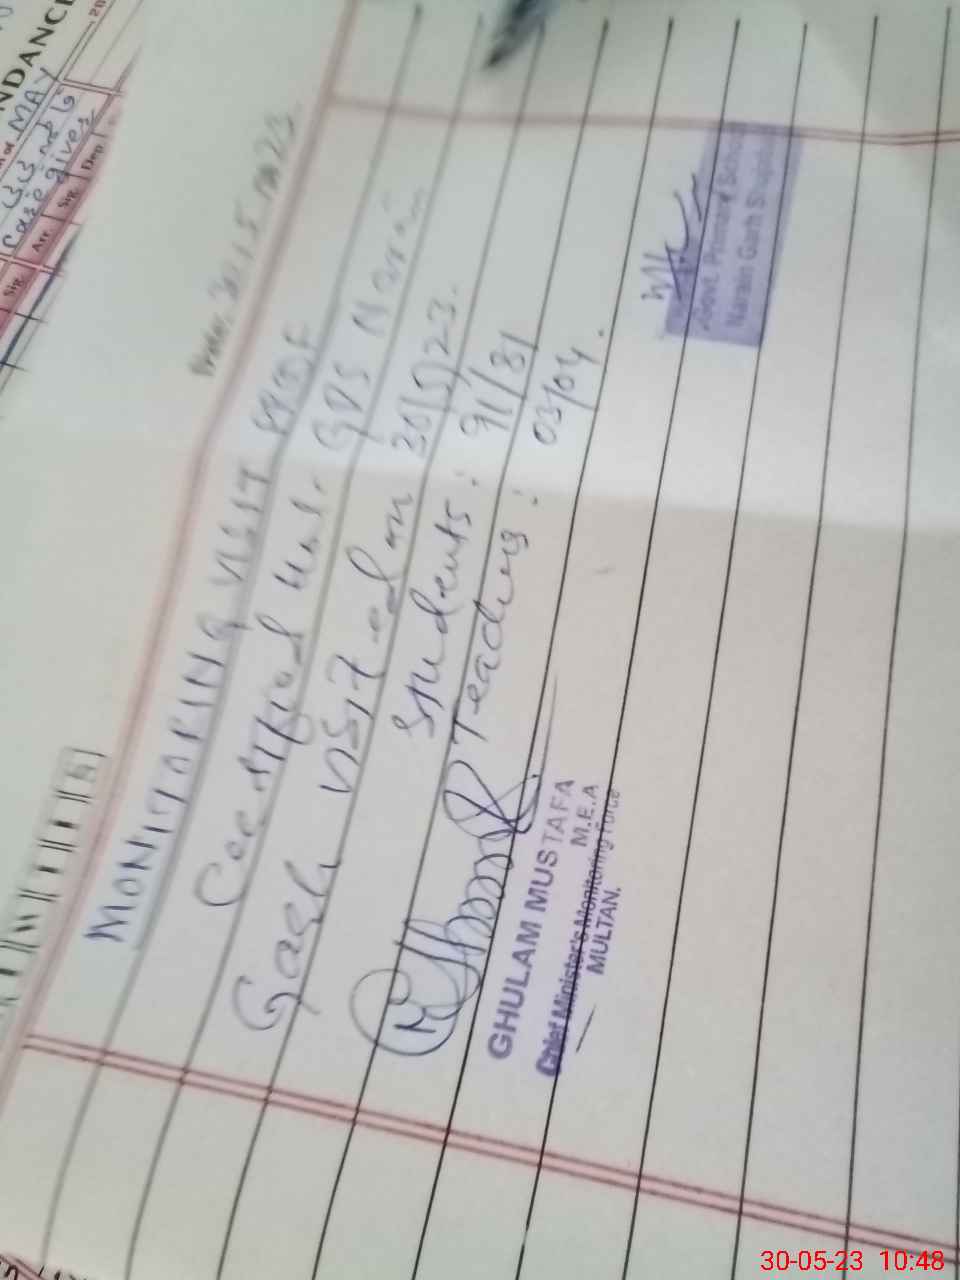 NDANCE
MAY
Case gives
Sig. Arr. Sig. Dep
MONITORING VISIT
Certified that GPS Narain
Garh visited on 30/5/23.
Students: 91/81
Teachers: 03/04.
GHULAM MUSTAFA
M.E.A
Chief Minister's Monitoring Force
MULTAN.
Govt. Primary School
Narain Garh Shujabad
30-05-23 10:48